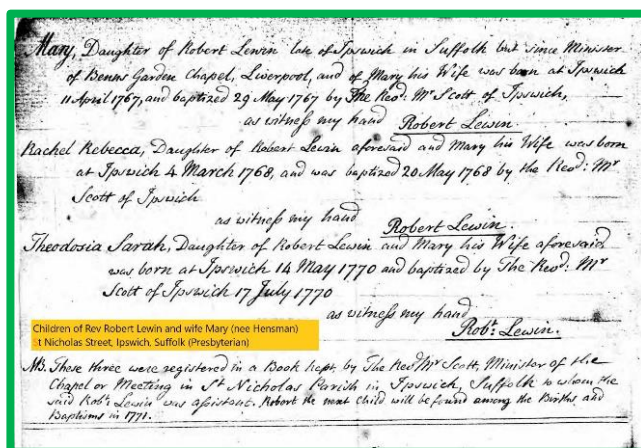 Mary, Daughter of Robert Lewin late of Ipswich in Suffolk but since Minister
of Benns Garden Chapel, Liverpool, and of Mary his Wife was born at Ipswich
11 April 1767, and baptized 29 May 1767 by The Revd: Mr Scott of Ipswich,
as witness my hand Robert Lewin.
Rachel Rebecca, Daughter of Robert Lewin aforesaid and Mary his Wife was born
at Ipswich 4 March 1768, and was baptized 20 May 1768 by the Revd: Mr
Scott of Ipswich
as witness my hand Robert Lewin.
Theodosia Sarah, Daughter of Robert Lewin and Mary his Wife aforesaid
was born at Ipswich 14 May 1770 and baptized by The Revd: Mr
Scott of Ipswich 17 July 1770
as witness my hand
Robt: Lewin.
Children of Rev Robert Lewin and wife Mary (nee Hensman)
St Nicholas Street, Ipswich, Suffolk (Presbyterian)
NB. These three were registered in a Book kept, by The Revd Mr Scott, Minister of the
Chapel or Meeting in St Nicholas Parish in Ipswich, Suffolk to whom the
said Robt: Lewin was assistant. Robert the next child will be found among the Births and
Baptisms in 1771.